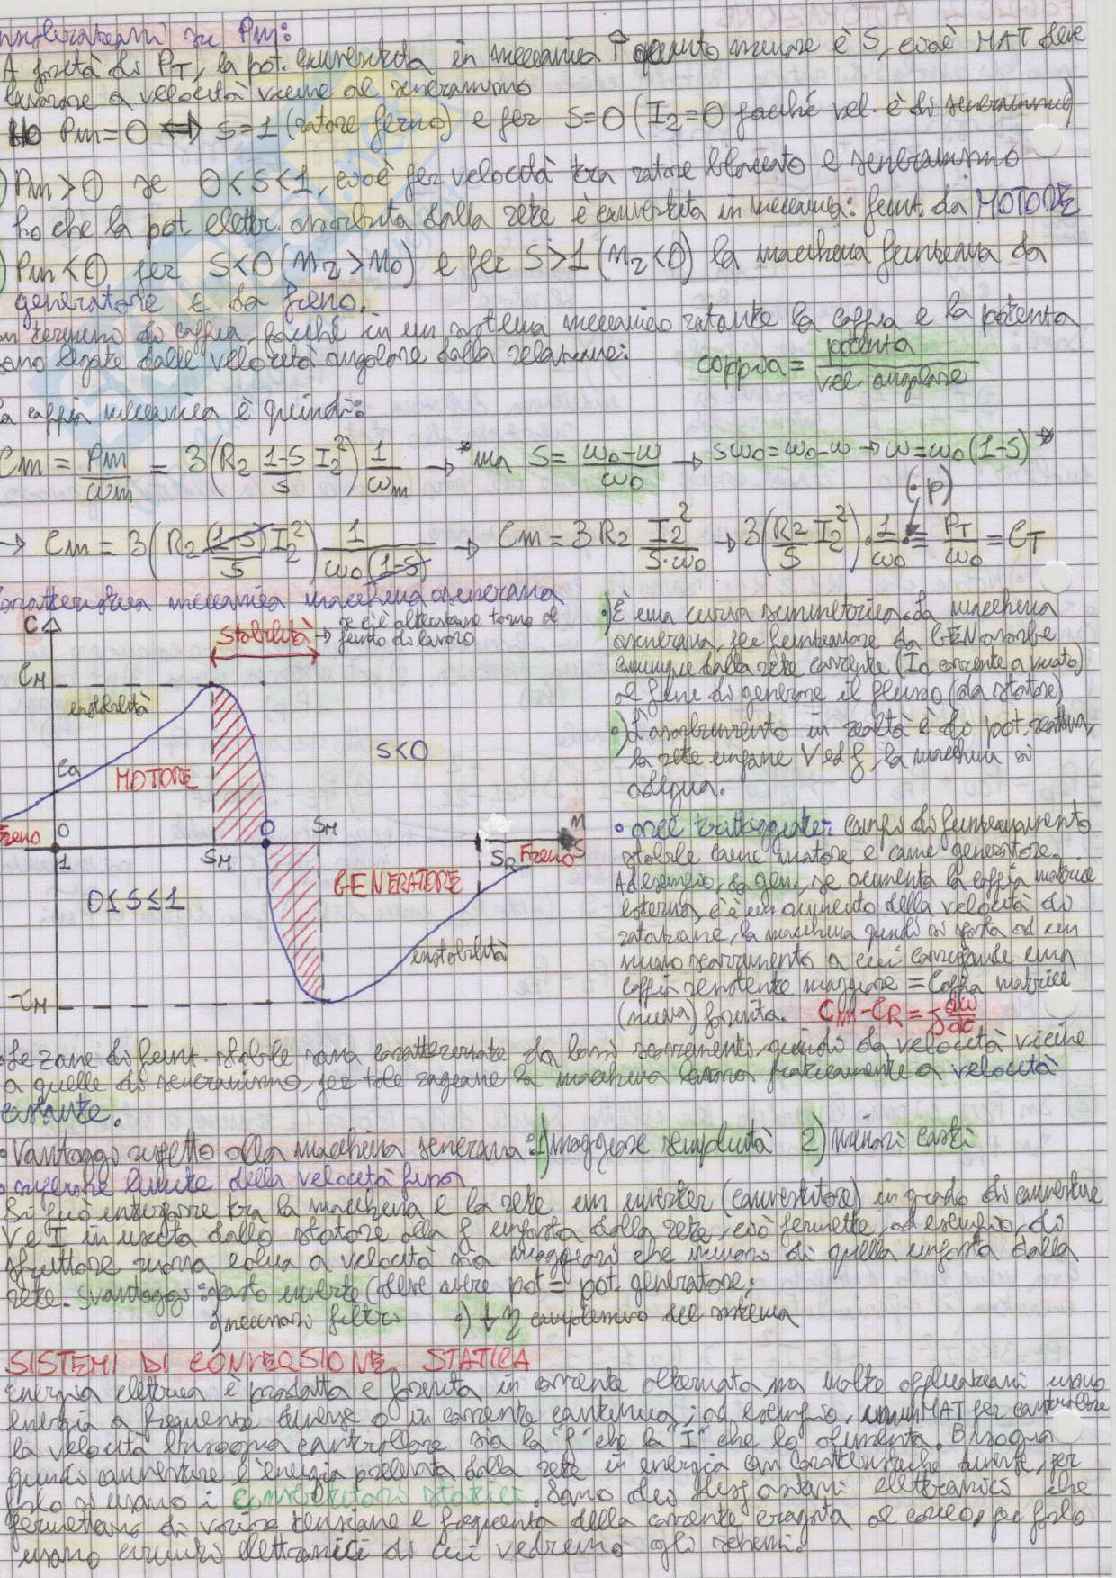 considerazioni su Pm:
A parità di PT, la pot. convertita in meccanica ↑ quanto minore è S, cioè MAT deve
lavorare a velocità vicine al sincronismo
Pm=0 ⟺ S=1 (rotore fermo) e per S=0 (I2=0 poiché vel. è di sincronismo)
Pm>0 se 0<S<1, cioè per velocità tra rotore bloccato e sincronismo
ho che la pot. elettr. assorbita dalla rete è convertita in meccanica: funz. da MOTORE
Pm<0 per S<0 (M2>M0) e per S>1 (M2<0) la macchina funziona da
generatore e da freno.
in termini di coppia, poiché in un sistema meccanico rotante la coppia e la potenza
sono legate dalla velocità angolare dalla relazione: coppia = potenza / vel. angolare
la coppia meccanica è quindi:
Cm = Pm/ωm = 3(R2 (1-S)/S I2²) 1/ωm → *ma S = (ω0-ω)/ω0 → sω0=ω0-ω → ω=ω0(1-S)*
(·p)
→ Cm = 3(R2 (1-S)/S I2²) 1/(ω0(1-S)) → Cm = 3R2 I2²/(S·ω0) → 3(R2/S I2²)·1/ω0 = PT/ω0 = CT
caratteristica meccanica macchina asincrona
C
Stabilità → se c'è alterazione torno al
punto di lavoro
CM
instabilità
Ca
MOTORE
S<0
Freno
0
1
SM
0
SM
SR
Freno
M
S
0≤S≤1
GENERATORE
instabilità
-CM
•) È una curva simmetrica. La macchina
asincrona, per funzionare da GEN assorbe
comunque dalla rete corrente (I0 corrente a vuoto)
al fine di generare il flusso (da statore)
•) L'assorbimento in realtà è di pot. reattiva,
la rete impone V ed f, la macchina si
adegua.
• nel tratteggiato: campi di funzionamento
stabile come motore e come generatore.
Ad esempio, da gen, se aumenta la coppia motrice
esterna, c'è un aumento della velocità di
rotazione, la macchina quindi si porta ad un
nuovo scorrimento a cui corrisponde una
coppia resistente maggiore = Coppia motrice
(nuova) fornita. CM-CR = J dω/dt
•Le zone di funz. stabile sono caratterizzate da bassi scorrimenti, quindi da velocità vicine
a quelle di sincronismo, per tale ragione la macchina lavora praticamente a velocità
costante.
•Vantaggi rispetto alla macchina sincrona: 1) maggiore semplicità 2) minori costi
Si può interporre tra la macchina e la rete un inverter (convertitore) in grado di convertire
V e I in uscita dallo statore alla f imposta dalla rete, ciò permette, ad esempio, di
sfruttare turbina eolica a velocità sia maggiori che minori di quella imposta dalla
rete. Svantaggi: •) costo inverter (deve avere pot = pot. generatore;
•) necessari filtri •) ↓ η complessivo del sistema
SISTEMI DI CONVERSIONE STATICA
Energia elettrica è prodotta e fornita in corrente alternata, ma molte applicazioni usano
energia a frequenze diverse o in corrente continua; ad esempio, in un MAT per controllare
la velocità bisogna controllare sia la "f" che la "I" che lo alimenta. Bisogna
quindi convertire l'energia prelevata dalla rete in energia con caratteristiche diverse, per
farlo si usano i convertitori statici. Sono dei dispositivi elettronici che
permettono di variare tensione e frequenza della corrente erogata al carico, per farlo
usano circuiti elettronici di cui vedremo gli schemi.